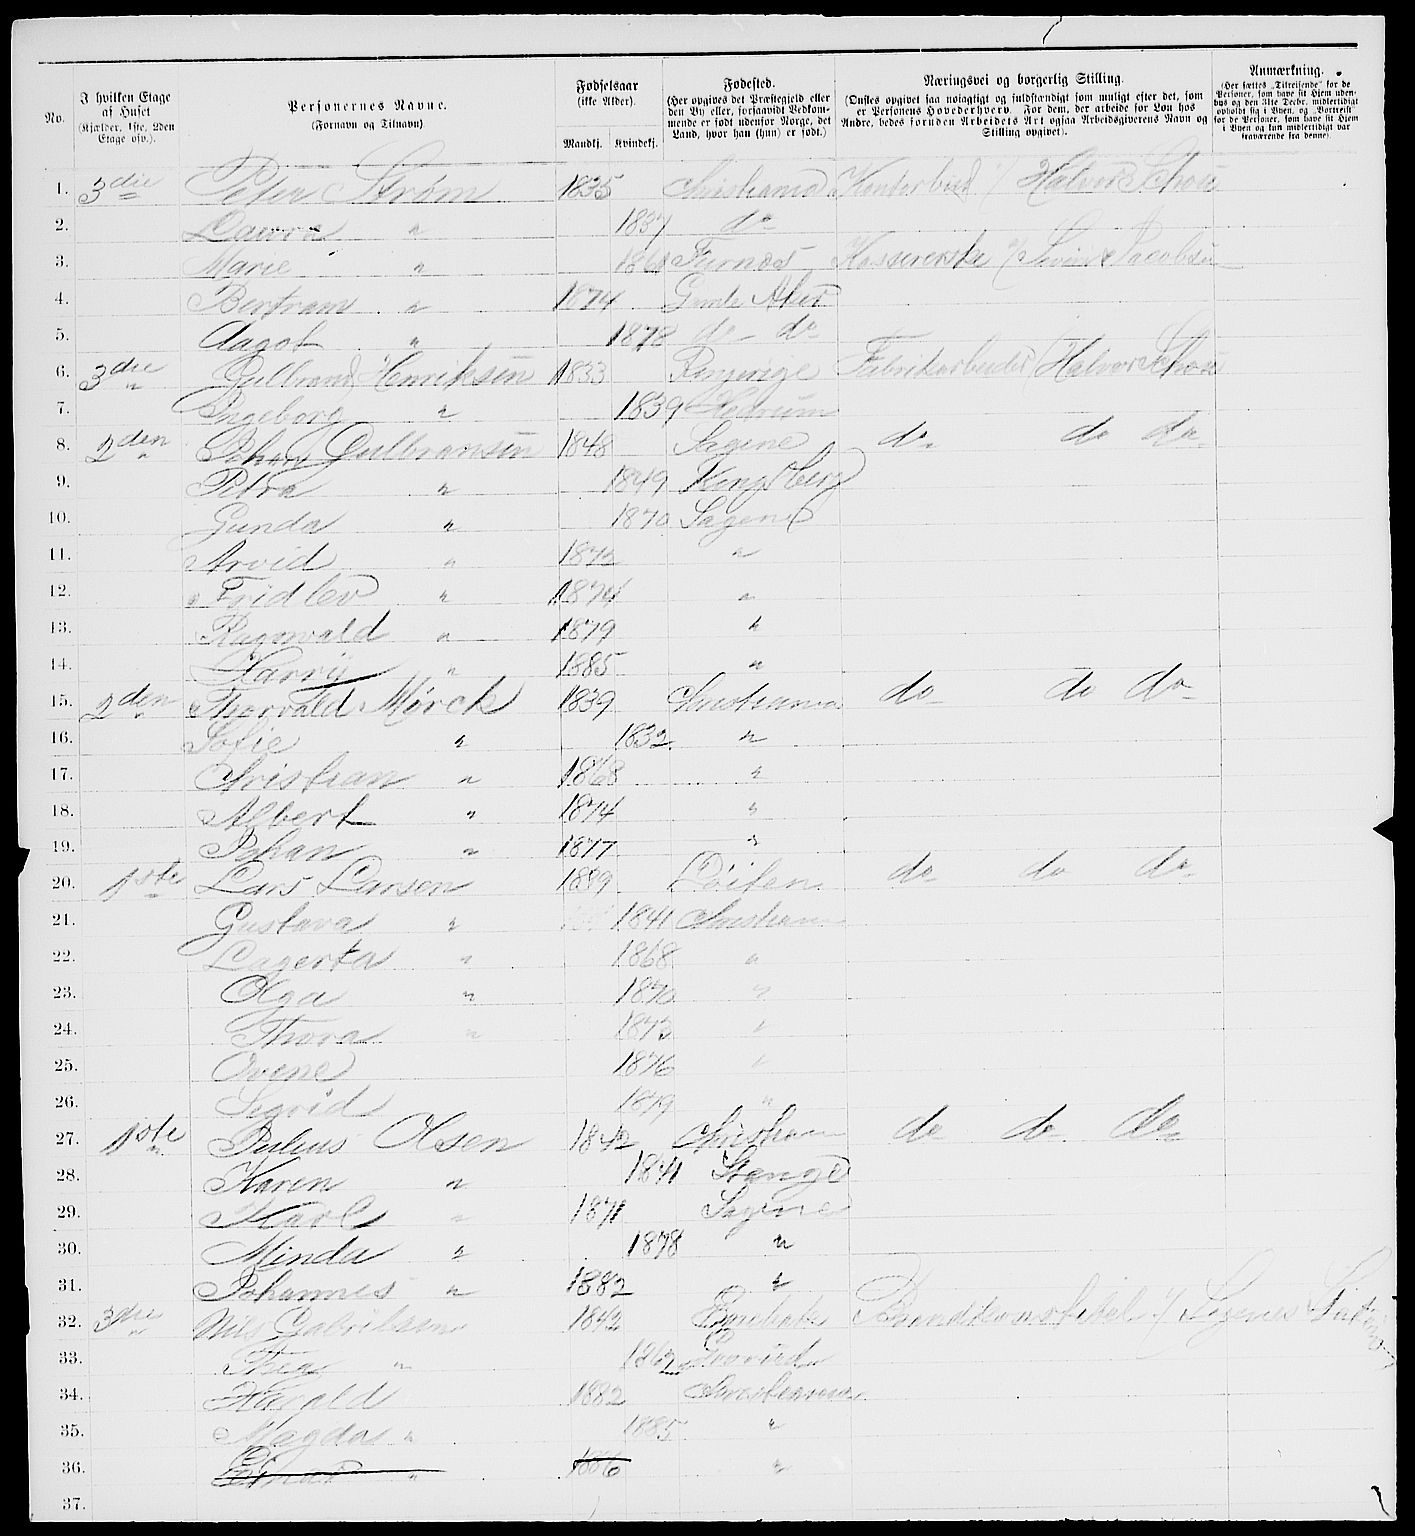 No.
I hvilken Etage af Huset (Kjælder, 1ste, 2den Etage osv.).
Personernes Navne. (Fornavn og Tilnavn)
Fødselsaar (ikke Alder). Mandkj. Kvindekj.
Fødested. (Her opgives det Præstegjeld eller den By eller, forsaavidt Vedkommende er født udenfor Norge, det Land, hvor han (hun) er født.)
Næringsvei og borgerlig Stilling. (Ønskes opgivet saa nøiagtig og fuldstændig som muligt efter det, som er Personens Hovederhverv. For dem, der arbeide for Løn hos Andre, bedes foruden Arbeidets Art ogsaa Arbeidsgiverens Navn og Stilling opgivet).
Anmærkning. (Her sættes „Tilreisende" for de Personer, som have sit Hjem udenbys og den 31te Decbr. midlertidigt opholdt sig i Byen, og „Bortreist" for de Personer, som have sit Hjem i Byen og kun midlertidigt var fraværende fra denne).
1. 3die Peter Strøm 1835 Christiania Kontorbud Halvor Schou
2. Laura " 1837 do
3. Marie " Furnæs Kassererske Jacobsen
4. Bertram " 1874 Gamle Aker
5. Aagot " 1878 do - do
6. 3die " Gulbrand Henriksen 1833 Ringerige Fabrikarbeider Halvor Schou
7. Ingeborg " 1839
8. 2den " Johan Gulbransen 1848 Sagene do do do
9. Petra " 1849 Kongsberg
10. Gunda " 1870 Sagene
11. Arvid " 1872 "
12. Fridlev " 1874 "
13. Ragnvald " 1879 "
14. Harry " 1885 "
15. 2den " Thorvald Mørck 1839 Christiania do do do
16. Sofie " 1832 "
17. Christian " 1868 "
18. Albert " 1874 "
19. Johan " 1877 "
20. 1ste Lars Larsen Løiten do do do
21. Gustava " 1841 Christiania
22. Lagerta " 1868 "
23. Olga " 1870 "
24. Thora " 1873 "
25. Ovene 1876 "
26. Sigrid 1879 "
27. 1ste " Julius Olsen 1842 Christiania do do do
28. Karen " 1841 Stange
29. Karl " 1871 Sagene
30. Minda " 1878 "
31. Johannes " 1882 "
32. 3die " Nils Gabrilsen 1842 Brandkonstabel Sagenes Station
33. Thea "
34. Harald 1882 Christiania
35. Magda " 1885 "
36. Einar " 1886 "
37.